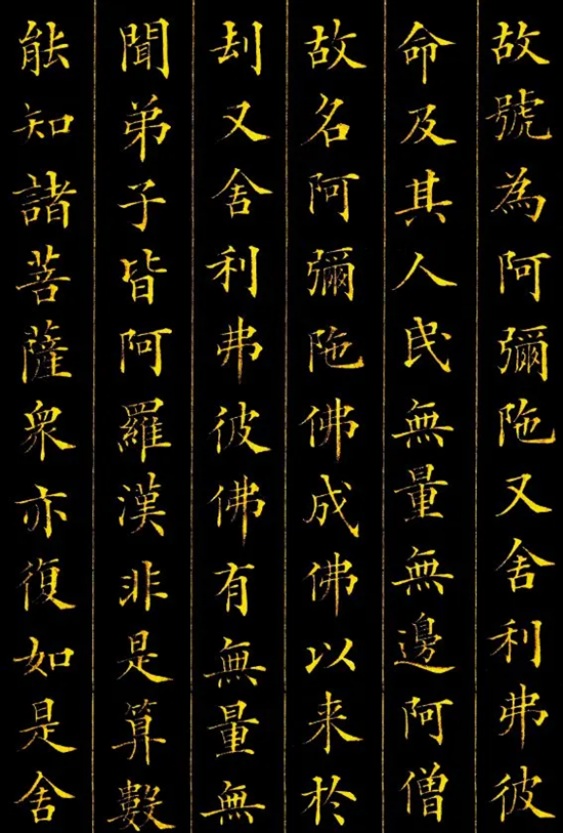 故號為阿彌陁又舍利弗彼
命及其人民無量無邊阿僧
故名阿彌陁佛成佛以来於
刦又舍利弗彼佛有無量無
聞弟子皆阿羅漢非是算數
能知諸菩薩衆亦復如是舍